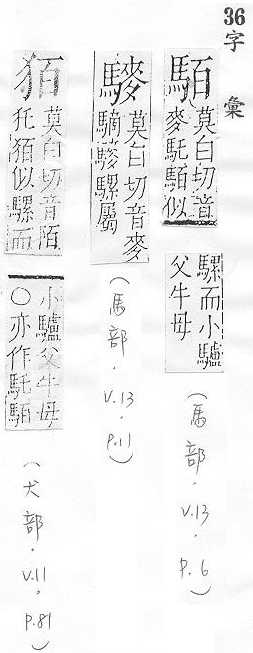 36 字彙
莫白切音
麥馲 似
騾而小驢
父牛母
（馬部．V.13．P.6）
莫白切音麥
騾屬
（馬部．V.13．P.11）
莫白切音陌
似騾而
小驢父牛母
〇亦作馲
（犬部．V.11．P.81）